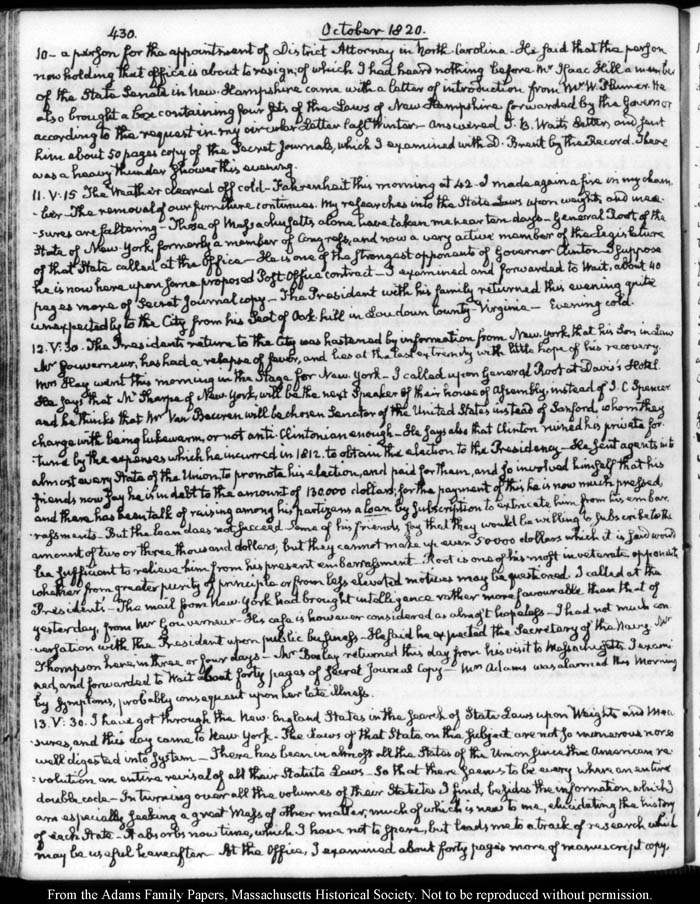 430.
October 1820.
10 – a person for the appointment of District Attorney in North-Carolina – He said that the person
now holding that office is about to resign; of which I had heard nothing before. Mr Isaac Hill a member
of the State Senate in New-Hampshire came with a letter of introduction from Mr W. Plumer. He
also brought a box containing four sets of the Laws of New Hampshire forwarded by the Governor
according to the request in my circular Letter last Winter – Answered T. B. Wait's Letter, and sent
him about 50 pages copy of the Secret Journals, which I examined with D. Brent by the Record. There
was a heavy thunder shower this evening.
11. V: 15. The Weather cleared off cold – Fahrenheit this morning at 42. I made again a fire in my cham
-ber – The removal of our furniture continues. My researches into the State Laws upon weights and mea
sures are faltering – Those of Massachusetts alone have taken me near ten days – General Root of the
State of New-York, formerly a member of Congress, and now a very active member of the Legislature
of that State called at the Office – He is one of the strongest opponents of Governor Clinton – I suppose
he is now here upon some proposed Post-Office contract – I examined and forwarded to Wait, about 40
pages more of Secret Journal copy – The President with his family returned this evening quite
unexpectedly to the City from his Seat of Oak-hill in Loudoun County – Virginia – Evening cold.
12. V: 30. The President's return to the City was hastened by information from New-York, that his Son in Law
Mr Gouverneur, has had a relapse of fever, and lies at the last extremity with little hope of his recovery.
Mrs Hay went this morning in the Stage for New-York – I called upon General Root at Davis's Hotel.
He says that Mr Sharpe of New York, will be the next Speaker of their house of Assembly instead of J. C Spencer
and he thinks that Mr Van Beuren will be chosen Senator of the United States instead of Sanford, whom they
charge with being lukewarm, or not anti-Clintonian enough – He says also that Clinton ruined his private for
tune by the expenses which he incurred in 1812. to obtain the election to the Presidency – He sent agents into
almost every State of the Union, to promote his election, and paid for them, and so involved himself that his
friends now say he is in debt to the amount of 130000 dollars, for the payment of this he is now much pressed,
and there has been talk of raising among his partizans a Loan by Subscription to extricate him from his embar
rassments. But the Loan does not succeed. Some of his friends, say that they would be willing to subscribe to the
amount of two or three thousand dollars, but they cannot make up even 50000 dollars which it is said would
be sufficient to relieve him from his present embarrassment. Root is one of his most inveterate opponents
whether from greater purity of principle or from less elevated motives may be questioned. I called at the
President's – The mail from New York had brought intelligence rather more favourable than that of
yesterday, from Mr Gouverneur – His case is however considered as almost hopeless – I had not much con
versation with the President upon public business. He said he expected the Secretary of the Navy Mr
Thompson here in three or four days – Mr Bailey returned this day from his visit to Massachusetts. I exami
ned, and forwarded to Wait about forty pages of Secret Journal Copy – Mrs Adams was alarmed this Morning
by symptoms, probably consequent upon her late illness.
13. V: 30. I have got through the New England States in the search of State Laws upon Weights and Mea
sures, and this day came to New York – The Laws of that State on the subject are not so numerous nor so
well digested into System – There has been in almost all the States of the Union since the American re
:volution an entire revisal of all their Statute Laws – So that there seems to be every where an entire
double code – In turning over all the volumes of their Statutes I find, besides the information which I
am especially seeking a great mass of other matter, much of which is new to me, elucidating the history
of each State. It absorbs now time, which I have not to spare, but leads me to a track of research which
may be useful hereafter – At the Office, I examined about forty pages more of manuscript copy,
From the Adams Family Papers, Massachusetts Historical Society. Not to be reproduced without permission.